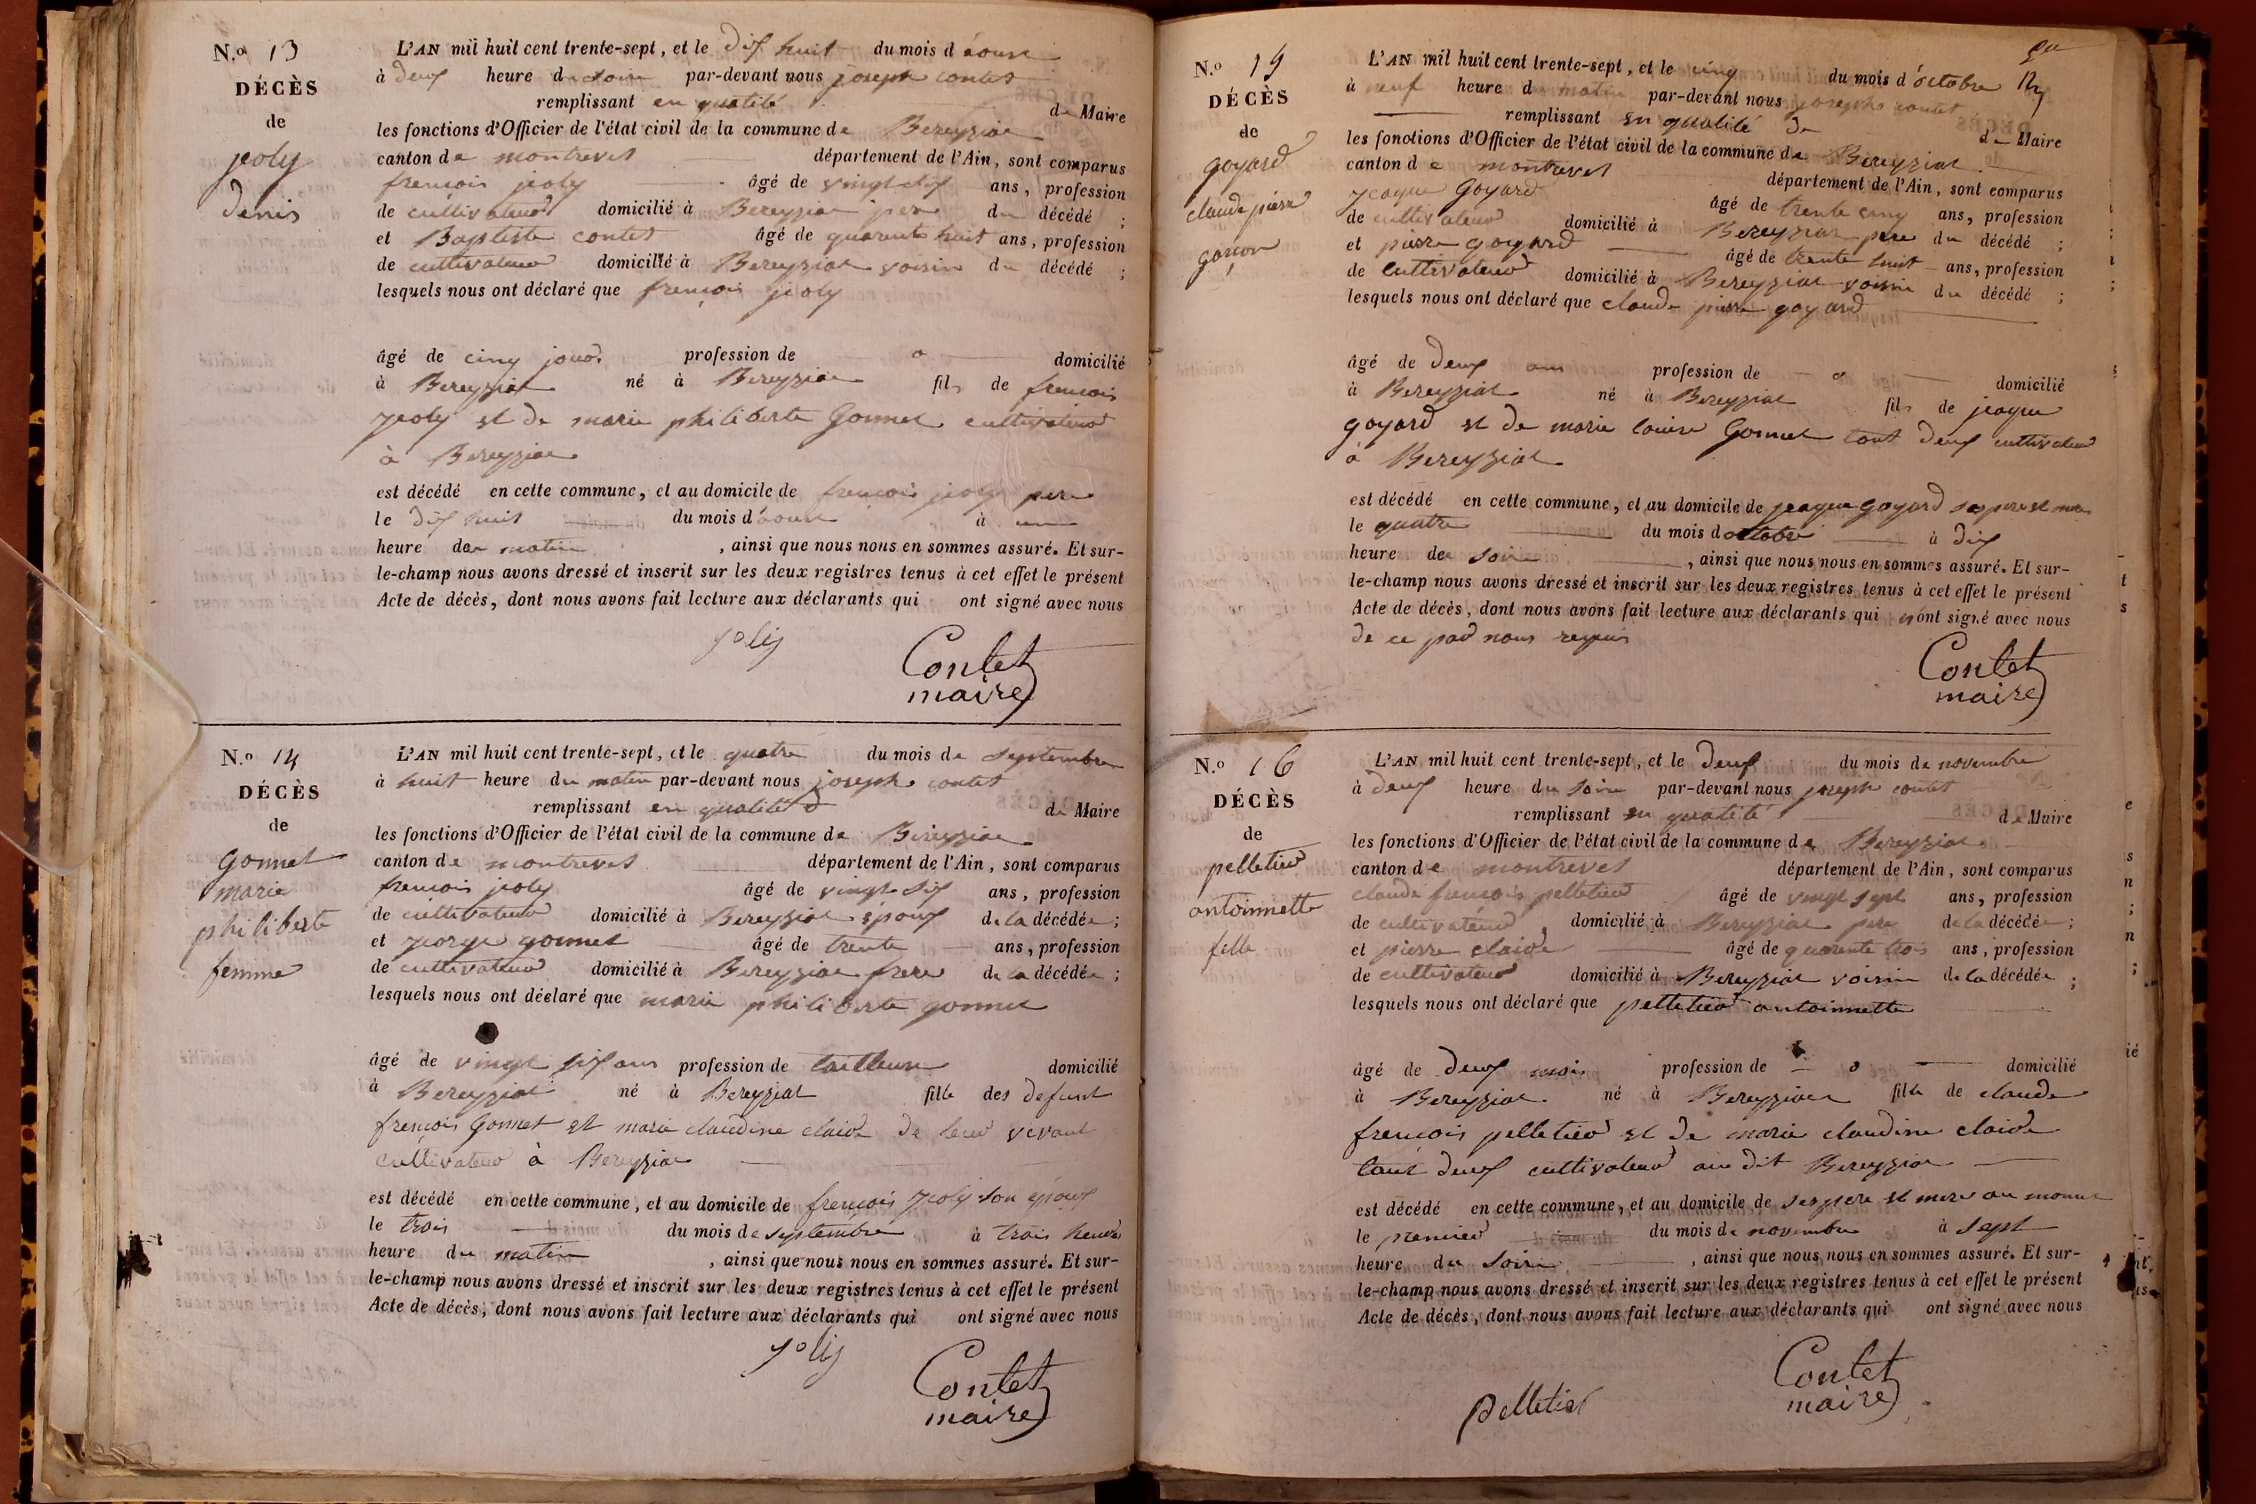 N.o 13
DÉCÈS
de
jeoly
denis
L'AN mil huit cent trente-sept, et le dix huit du mois d aoust
à deux heure du soire par-devant nous joseph contet
remplissant en qualité de Maire
les fonctions d'Officier de l'état civil de la commune de Bereyziat
canton de montrevet département de l'Ain, sont comparus
francois jeoly âgé de vingt six ans, profession
de cultivateur domicilié à Bereyziat pere du décédé ;
et Baptiste contet âgé de quarente huit ans, profession
de cultivateur domicilié à Bereyziat voisin du décédé ;
lesquels nous ont déclaré que francois jeoly
âgé de cinq jour profession de o domicilié
à Bereyziat né à Bereyziat fils de francois
jeoly et de marie philiberte Gonnet cultivateur
à Bereyziat
est décédé en cette commune, et au domicile de francois jeoly pere
le dix huit du mois d'aoust à une
heure de matin , ainsi que nous nous en sommes assuré. Et sur-
le-champ nous avons dressé et inscrit sur les deux registres tenus à cet effet le présent
Acte de décès, dont nous avons fait lecture aux déclarants qui ont signé avec nous
joly
Contet
maire
N.o 14
DÉCÈS
de
Gonnet
marie
philiberte
femme
L'AN mil huit cent trente-sept, et le quatre du mois de septembre
à huit heure du matin par-devant nous joseph contet
remplissant en qualité d de Maire
les fonctions d'Officier de l'état civil de la commune de Bereyziat
canton de montrevet département de l'Ain, sont comparus
francois jeoly âgé de vingt six ans, profession
de cultivateur domicilié à Bereyziat époux de la décédée ;
et jeorge gonnet âgé de trente ans, profession
de cultivateur domicilié à Bereyziat frere de la décédée ;
lesquels nous ont déclaré que marie philiberte gonnet
âgé de vingt six ans profession de tailleuse domicilié
à Bereyziat né à Bereyziat fille des defunt
francois Gonnet et marie claudine claide de leur vivant
cultivateur à Bereyziat
est décédé en cette commune, et au domicile de francois jeoly son époux
le trois du mois de septembre à trois heure
heure du matin , ainsi que nous nous en sommes assuré. Et sur-
le-champ nous avons dressé et inscrit sur les deux registres tenus à cet effet le présent
Acte de décès, dont nous avons fait lecture aux déclarants qui ont signé avec nous
joly
Contet
maire
N.o 15
DÉCÈS
de
goyard
claude pierre
garcon
L'AN mil huit cent trente-sept, et le cinq du mois d'octobre
à neuf heure du matin par-devant nous joseph contet
remplissant en qualité de de Maire
les fonctions d'Officier de l'état civil de la commune de Bereyziat
canton de montrevet département de l'Ain, sont comparus
jeaque Goyard âgé de trente cinq ans, profession
de cultivateur domicilié à Bereyziat pere du décédé ;
et pierre goyard âgé de trente huit ans, profession
de cultivateur domicilié à Bereyziat voisin du décédé ;
lesquels nous ont déclaré que claude pierre goyard
âgé de deux ans profession de o domicilié
à Bereyziat né à Bereyziat fils de jeaque
goyard et de marie louise Gonnet tout deux cultivateur
à Bereyziat
est décédé en cette commune, et au domicile de jeaque goyard ses pere et mere
le quatre du mois d octobre à dix
heure de soire , ainsi que nous nous en sommes assuré. Et sur-
le-champ nous avons dressé et inscrit sur les deux registres tenus à cet effet le présent
Acte de décès, dont nous avons fait lecture aux déclarants qui n'ont signé avec nous
de ce par nous requis
Contet
maire
N.o 16
DÉCÈS
de
pelletier
antoinnette
fille
L'AN mil huit cent trente-sept, et le deux du mois de novembre
à deux heure du soire par-devant nous joseph contet
remplissant en qualité de Maire
les fonctions d'Officier de l'état civil de la commune de Bereyziat
canton de montrevet département de l'Ain, sont comparus
claude francois pelletier âgé de vingt sept ans, profession
de cultivateur domicilié à Bereyziat pere de la décédée ;
et pierre claide âgé de quarente trois ans, profession
de cultivateur domicilié à Bereyziat voisin de la décédée ;
lesquels nous ont déclaré que pelletier antoinnette
âgé de deux mois profession de o domicilié
à Bereyziat né à Bereyziat fille de claude
francois pelletier et de marie claudine claide
tout deux cultivateur au dit Bereyziat
est décédé en cette commune, et au domicile de ses pere et mere
le premier du mois de novembre à sept
heure du soire , ainsi que nous nous en sommes assuré. Et sur-
le-champ nous avons dressé et inscrit sur les deux registres tenus à cet effet le présent
Acte de décès, dont nous avons fait lecture aux déclarants qui ont signé avec nous
Pelletier
Contet
maire